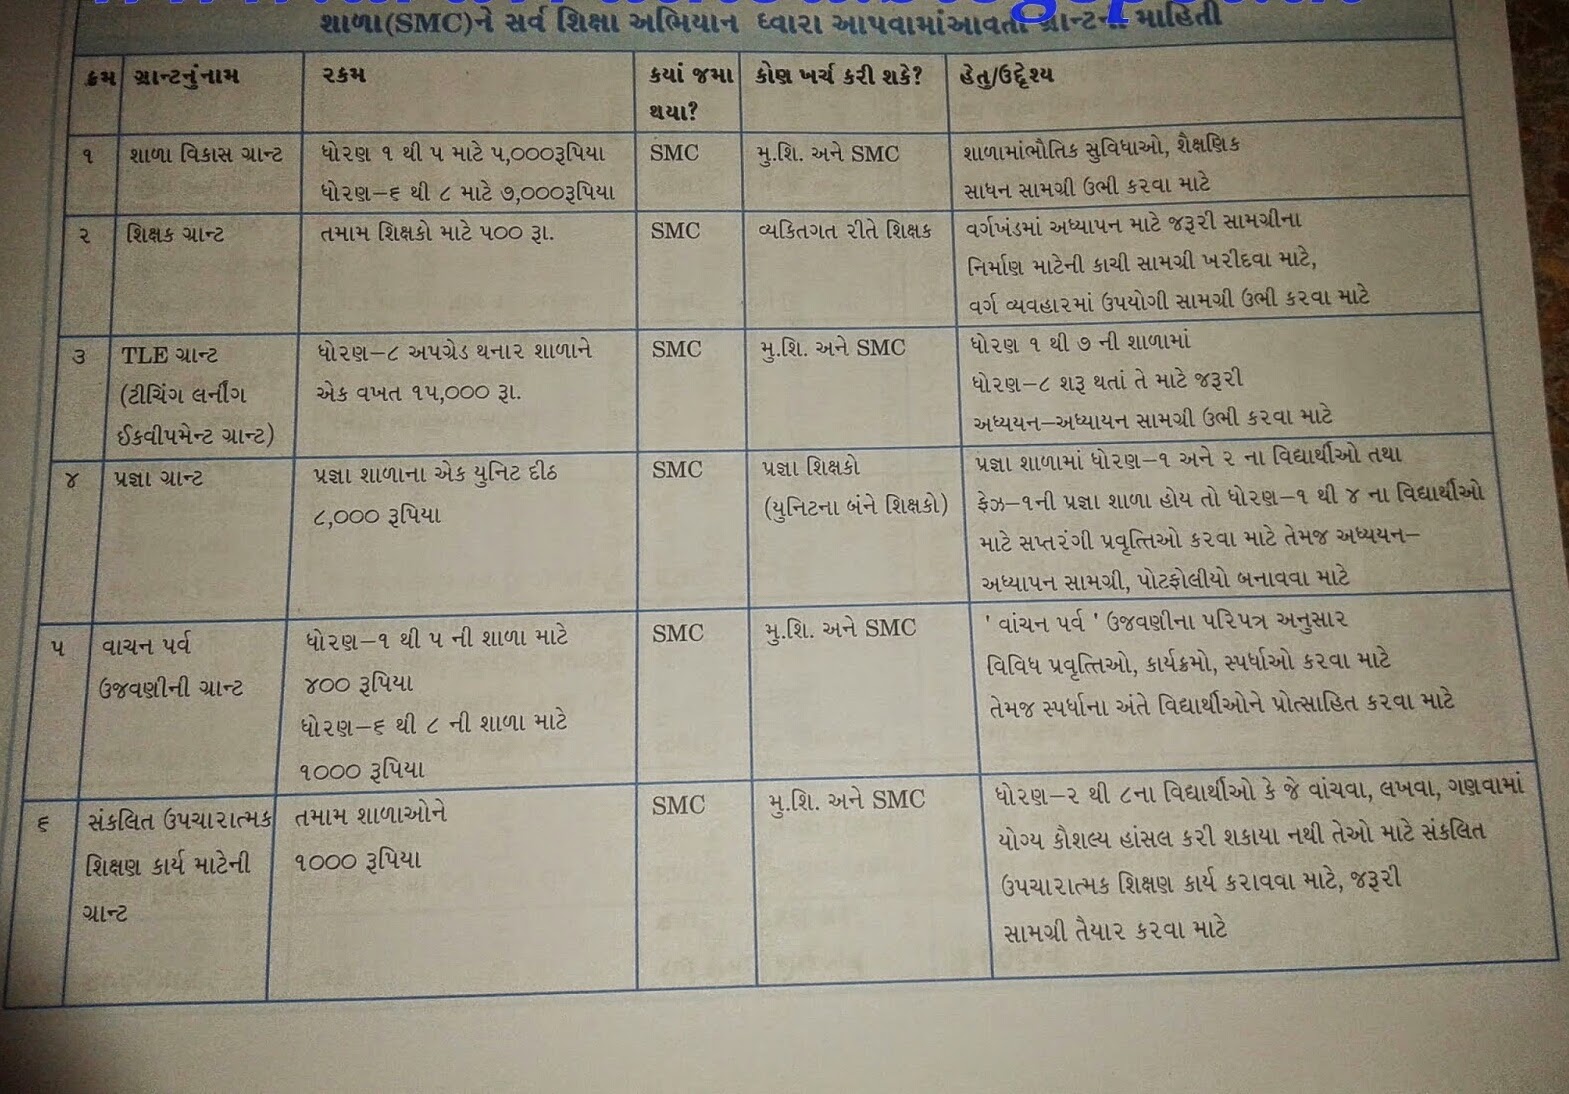 શાળા(SMC)ને સર્વ શિક્ષા અભિયાન ધ્વારા આપવામાંઆવતી ગ્રાન્ટની માહિતી
ક્રમ ગ્રાન્ટનુંનામ રકમ કયાં જમા થયા? કોણ ખર્ચ કરી શકે? હેતુ/ઉદ્દેશ્ય
૧ શાળા વિકાસ ગ્રાન્ટ
ધોરણ ૧ થી ૫ માટે ૫,૦૦૦રૂપિયા
ધોરણ–૬ થી ૮ માટે ૭,૦૦૦રૂપિયા
SMC
મુ.શિ. અને SMC
શાળામાંભૌતિક સુવિધાઓ, શૈક્ષણિક
સાધન સામગ્રી ઉભી કરવા માટે
૨ શિક્ષક ગ્રાન્ટ
તમામ શિક્ષકો માટે ૫૦૦ રૂા.
SMC
વ્યકિતગત રીતે શિક્ષક
વર્ગખંડમાં અધ્યાપન માટે જરૂરી સામગ્રીના
નિર્માણ માટેની કાચી સામગ્રી ખરીદવા માટે,
વર્ગ વ્યવહારમાં ઉપયોગી સામગ્રી ઉભી કરવા માટે
૩ TLE ગ્રાન્ટ
(ટીચિંગ લર્નીંગ
ઈકવીપમેન્ટ ગ્રાન્ટ)
ધોરણ–૮ અપગ્રેડ થનાર શાળાને
એક વખત ૧૫,૦૦૦ રૂા.
SMC
મુ.શિ. અને SMC
ધોરણ ૧ થી ૭ ની શાળામાં
ધોરણ–૮ શરૂ થતાં તે માટે જરૂરી
અધ્યયન–અધ્યાયન સામગ્રી ઉભી કરવા માટે
૪ પ્રજ્ઞા ગ્રાન્ટ
પ્રજ્ઞા શાળાના એક યુનિટ દીઠ
૮,૦૦૦ રૂપિયા
SMC
પ્રજ્ઞા શિક્ષકો
(યુનિટના બંને શિક્ષકો)
પ્રજ્ઞા શાળામાં ધોરણ–૧ અને ૨ ના વિદ્યાર્થીઓ તથા
ફેઝ–૧ની પ્રજ્ઞા શાળા હોય તો ધોરણ–૧ થી ૪ ના વિદ્યાર્થીઓ
માટે સપ્તરંગી પ્રવૃત્તિઓ કરવા માટે તેમજ અધ્યયન–
અધ્યાપન સામગ્રી, પોટફોલીયો બનાવવા માટે
૫ વાચન પર્વ
ઉજવણીની ગ્રાન્ટ
ધોરણ–૧ થી ૫ ની શાળા માટે
૪૦૦ રૂપિયા
ધોરણ–૬ થી ૮ ની શાળા માટે
૧૦૦૦ રૂપિયા
SMC
મુ.શિ. અને SMC
' વાંચન પર્વ ' ઉજવણીના પરિપત્ર અનુસાર
વિવિધ પ્રવૃત્તિઓ, કાર્યક્રમો, સ્પર્ધાઓ કરવા માટે
તેમજ સ્પર્ધાના અંતે વિદ્યાર્થીઓને પ્રોત્સાહિત કરવા માટે
૬ સંકલિત ઉપચારાત્મક
શિક્ષણ કાર્ય માટેની
ગ્રાન્ટ
તમામ શાળાઓને
૧૦૦૦ રૂપિયા
SMC
મુ.શિ. અને SMC
ધોરણ–૨ થી ૮ના વિદ્યાર્થીઓ કે જે વાંચવા, લખવા, ગણવામાં
યોગ્ય કૌશલ્ય હાંસલ કરી શકાયા નથી તેઓ માટે સંકલિત
ઉપચારાત્મક શિક્ષણ કાર્ય કરાવવા માટે, જરૂરી
સામગ્રી તૈયાર કરવા માટે